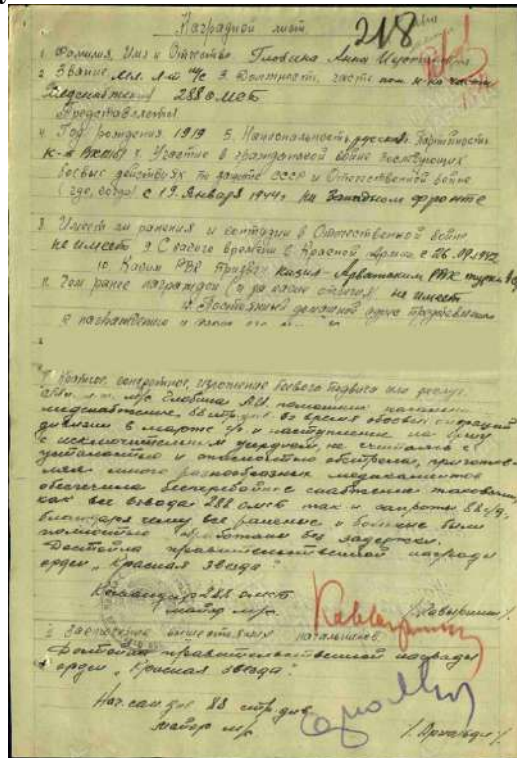 Наградной лист 218
1 Фамилия, Имя и Отчество Анна
2 Звание Мл. л-т м/с 3. Должность, часть пом. н-ка части
медснабжения 288 ОМСБ
Представляется
4. Год рождения 1919 5. Национальность русская. Партийность
к-т ВКП(б) 7. Участие в гражданской войне последующих
боевых действиях по защите СССР и Отечественной войне
(где, когда) с 19. Января 1944г на Западном фронте
8 Имеет ли ранения и контузии в Отечественной войне
не имеет 9. С какого времени в Красной Армии с 26.09.1942
10 Каким РВК призван Кизил-Арватским РВК
11. Чем ранее награжден (и за какие отличия) не имеет
12. Постоянный домашний адрес представляемого
к награждению и
Краткое, конкретное, изложение боевого подвига или заслуг
Мл. л-т. м/с А.И. помощник начальника
медснабжения, во время боевых операций
дивизии в марте м/г и наступление на
с исключительным усердием, не считаясь с
усталостью и опасностью обстрелов,
много разнообразных медикаментов
обеспечила бесперебойное снабжение таковыми,
как все взвода 288 омсб так и 88 с/д,
благодаря чему все раненые и больные были
полностью обработаны без задержки.
Достойна правительственной награды
орден „Красная Звезда“
Командир 288 омсб
майор м/с
Заключение вышестоящих начальников
Достойна правительственной награды
орден „Красная звезда“.
Нач. сан. див. 88 стр. див.
майор м/с